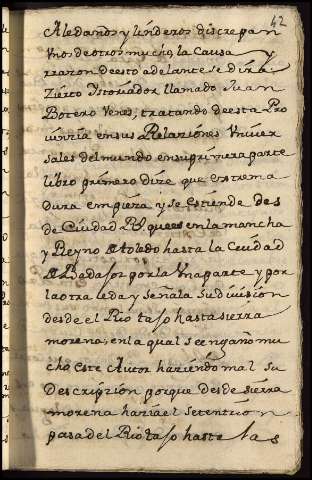 42
Aledaños y linderos discrepan
Unos de otros mucho, la Causa y
rrazon de esto adelante se dira
Zierto Istoriador llamado Juan
Botero Venes, tratando de esta Pro
vinzia en sus Relaziones Univer
sales del mundo en su primera parte
libro primero dize que extrema
dura empieza y se estiende des
de Ciudad Rl que es en la mancha
y Reyno de toledo hasta la Ciudad
de Badajoz por la Una parte y por
la otra leda y señala su division
desde el Rio tajo hasta sierra
morena; en la qual se engaño mu
cho este Autor haziendo mal su
Descripzion porque desde sierra
morena hazia el Setentrion
pasa del Rio tajo hasta las